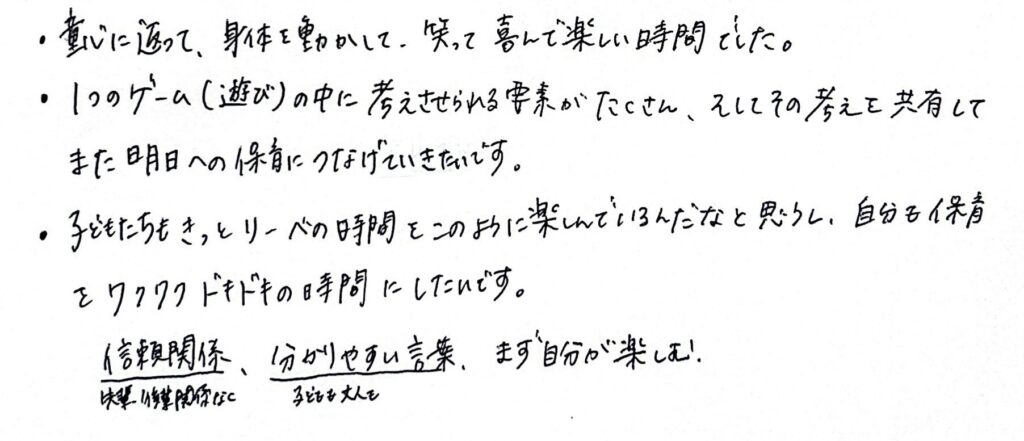 ・童心に返って、身体を動かして、笑って喜んで楽しい時間でした。
・1つのゲーム(遊び)の中に考えさせられる要素がたくさん、そしてその考えを共有して
また明日への保育につなげていきたいです。
・子どもたちもきっとリーベの時間をこのように楽しんでいるんだなと思うし、自分も保育
をワクワクドキドキの時間にしたいです。
信頼関係、分かりやすい言葉、まず自分が楽しむ!
先輩・後輩関係なく 子どもも大人も